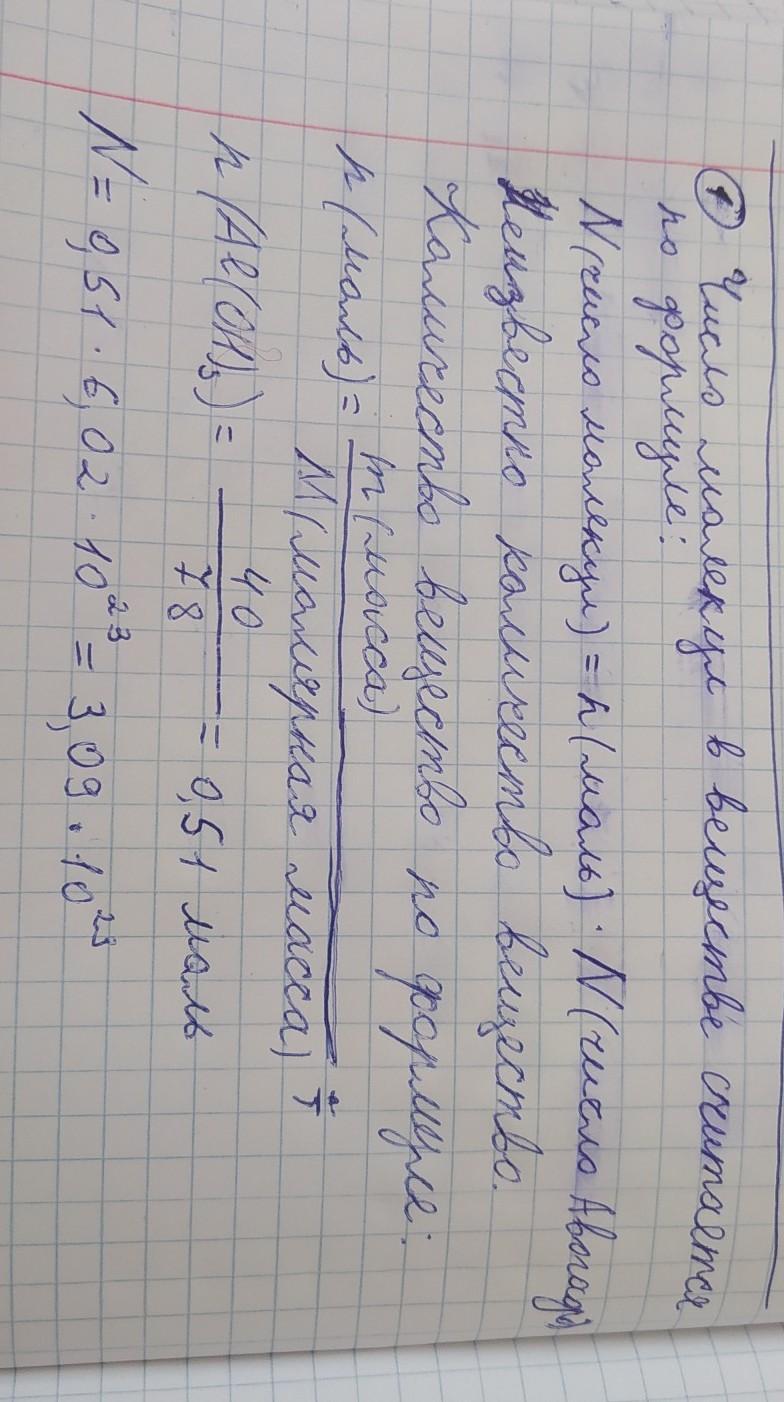 1 Число молекул в веществе считается
по формуле:
N(число молекул) = n(моль) · N(число Авогадр)
Неизвестно количество вещество.
Количество вещество по формуле:
n(моль) = m(масса) / M(молярная масса)
n(Al(OH)3) = 40 / 78 = 0,51 моль
N = 0,51 · 6,02 · 10^23 = 3,09 · 10^23